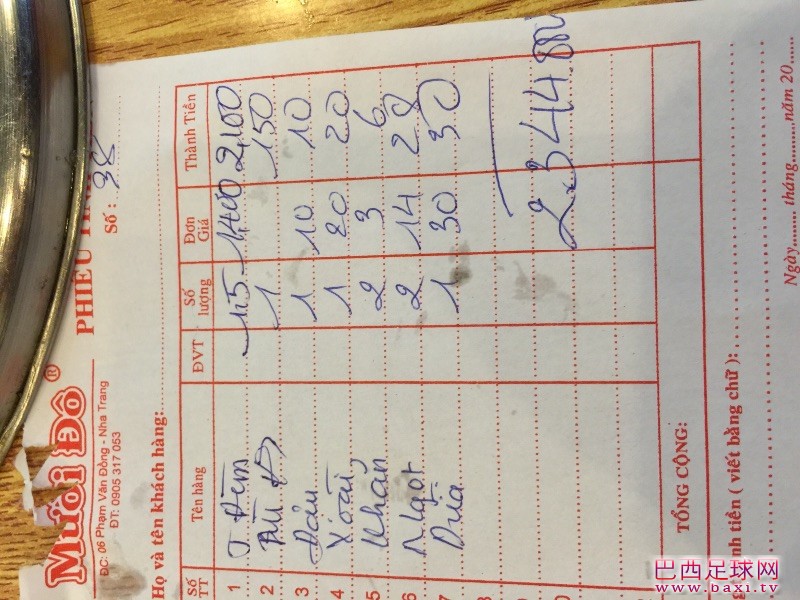 Mười Đô ®
ĐC: 06 Phạm Văn Đồng - Nha Trang
ĐT: 0905 317 053
PHIẾU
Số : 38
Họ và tên khách hàng:
Số TT Tên hàng ĐVT Số lượng Đơn Giá Thành Tiền
1 T Đêm 1,5 1400 2,100
2 1 150
3 Đậu 1 10 10
4 Xoài 1 20 20
5 Khăn 2 3 6
6 Ngọt 2 14 28
7 Dừa 1 30 30
8
9
10
2.344
TỔNG CỘNG:
nh tiền ( viết bằng chữ ):
Ngày........ tháng.........năm 20
巴西足球网
www.baxi.tv